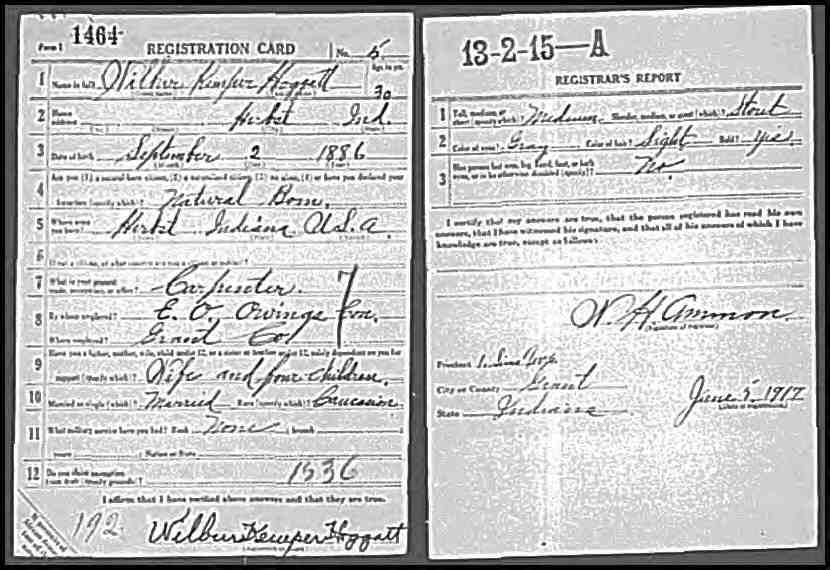 Form 1 1464 REGISTRATION CARD No. 5
1 Name in full Wilbur Kemper Hoggatt Age, in yrs. 30
2 Home address Herbst Ind.
3 Date of birth September 2 1886
4 Are you (1) a natural-born citizen, (2) a naturalized citizen, (3) an alien, (4) or have you declared your
intention (specify which)? Natural Born
5 Where were you born? Herbst Indiana U.S.A.
6 If not a citizen, of what country are you a citizen or subject?
7 What is your present trade, occupation, or office? Carpenter 7
8 By whom employed? E. O. Owings Con.
Where employed? Grant Co
9 Have you a father, mother, wife, child under 12, or a sister or brother under 12, solely dependent on you for
support (specify which)? Wife and four children.
10 Married or single (which)? Married Race (specify which)? Caucasion
11 What military service have you had? Rank None ; branch
years ; Nation or State
12 Do you claim exemption from draft (specify grounds)? 1536
I affirm that I have verified above answers and that they are true.
192. Wilbur Kemper Hoggatt
13-2-15—A
REGISTRAR'S REPORT
1 Tall, medium, or short (specify which)? Medium Slender, medium, or stout (which)? Stout
2 Color of eyes? Gray Color of hair? Light Bald? yes
3 Has person lost arm, leg, hand, foot, or both eyes, or is he otherwise disabled (specify)? No.
I certify that my answers are true, that the person registered has read his own
answers, that I have witnessed his signature, and that all of his answers of which I have
knowledge are true, except as follows:
N. H. Ammon
(Signature of registrar)
Precinct 1.
City or County Grant
State Indiana June 5 1917
(Date of registration)